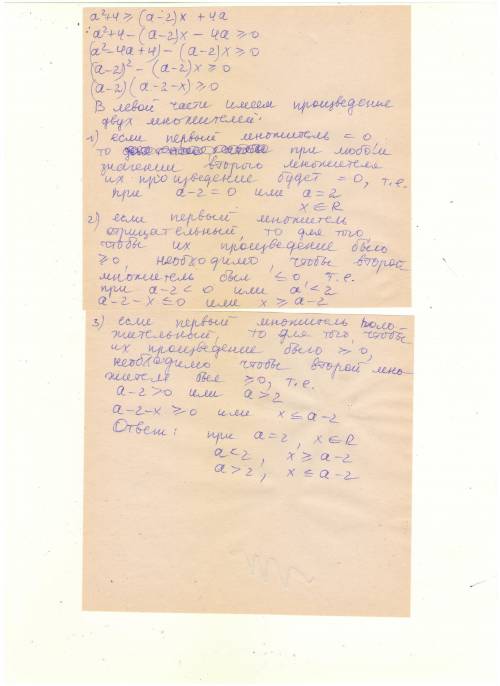 a²+4 ≥ (a-2)x + 4a
a²+4 - (a-2)x - 4a ≥ 0
(a²-4a+4) - (a-2)x ≥ 0
(a-2)² - (a-2)x ≥ 0
(a-2)(a-2-x) ≥ 0
В левой части имеем произведение
двух множителей:
1) если первый множитель = 0
то при любом
значении второго множителя
их произведение будет = 0, т.е.
при a-2=0 или a=2
x∈R
2) если первый множитель
отрицательный, то для того,
чтобы их произведение было
≥0, необходимо, чтобы второй
множитель был ≤0, т.е.
при a-2<0 или a<2
a-2-x≤0 или x≥a-2
3) если первый множитель поло-
жительный, то для того, чтобы
их произведение было ≥0,
необходимо чтобы второй мно-
житель был ≥0, т.е.
a-2>0 или a>2
a-2-x≥0 или x≤a-2
Ответ: при a=2, x∈R
a<2, x≥a-2
a>2, x≤a-2